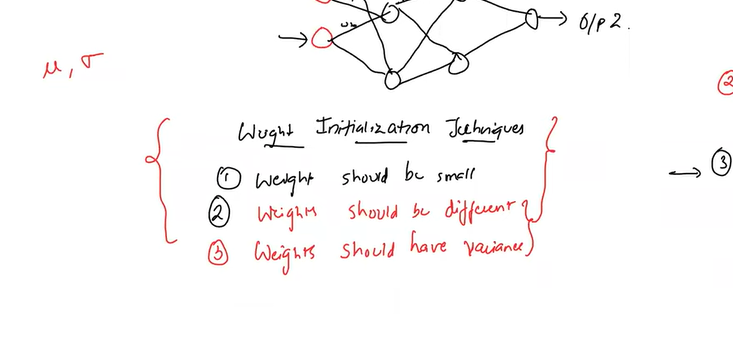 O/P 2.
μ, σ
2
Weight Initialization Techniques
3
1 Weight should be small
2 Weights should be different
3 Weights should have variance